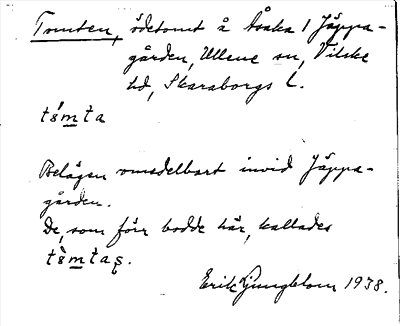 Tomten, ödetomt å Åsaka 1 Jäppa-
gården, Ullene sn, Vilske
hd, Skaraborgs l.
Belägen omedelbart invid Jäppa-
gården.
De, som förr bodde här, kallades
Erik Ljungblom 1938.